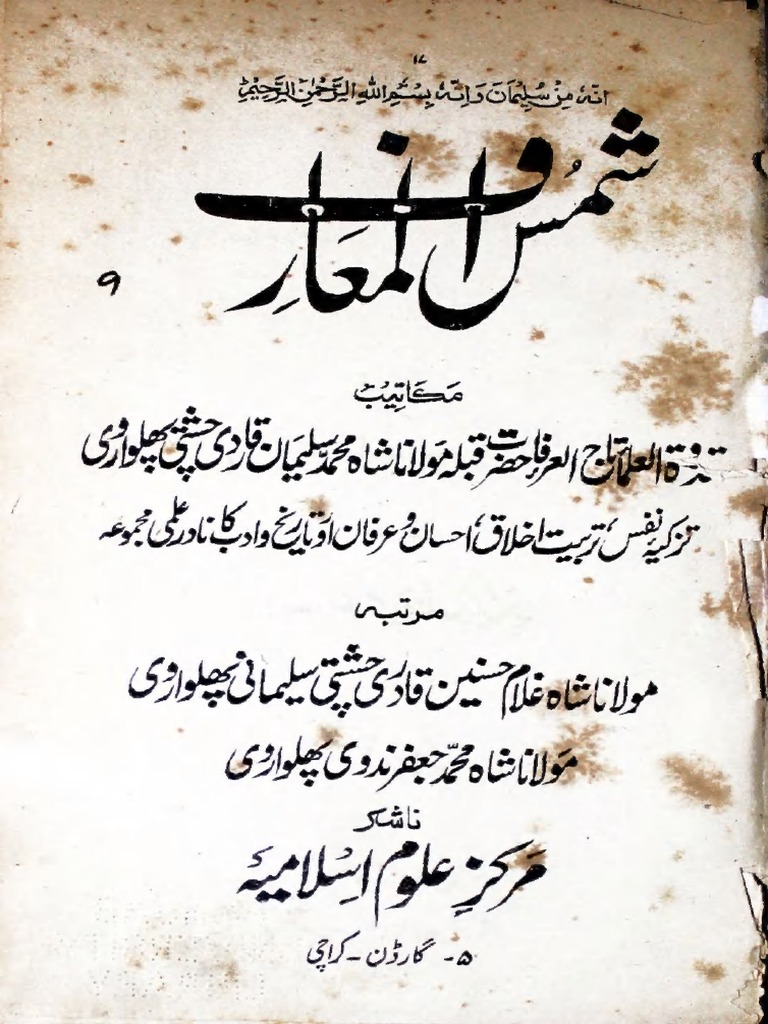 ۱۷
انّہٗ مِنْ سُلیْمَانَ وَاِنَّہٗ بِسْمِ اللہِ الرَّحْمٰنِ الرَّحِیْمِ
شمسُ المعَارِف
۹
مکاتیب
قدوۃ العلما تاج العرفا حضرت قبلہ مولانا شاہ محمد سلیمان قادری چشتی پھلواروی
تزکیۂ نفس، تربیت اخلاق، احسان و عرفان اور تاریخ و ادب کا نادر علمی مجموعہ
مرتبہ
مولانا شاہ غلام حسنین قادری چشتی سلیمانی پھلواروی
مولانا شاہ محمّد جعفر ندوی پھلواروی
ناشر
مرکزِ علوم اسلامیہ
۵۔ گارڈن ۔ کراچی